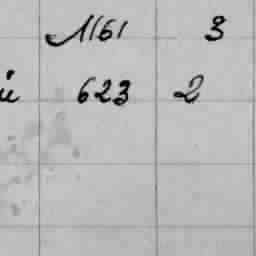 1161 3
й 623 2